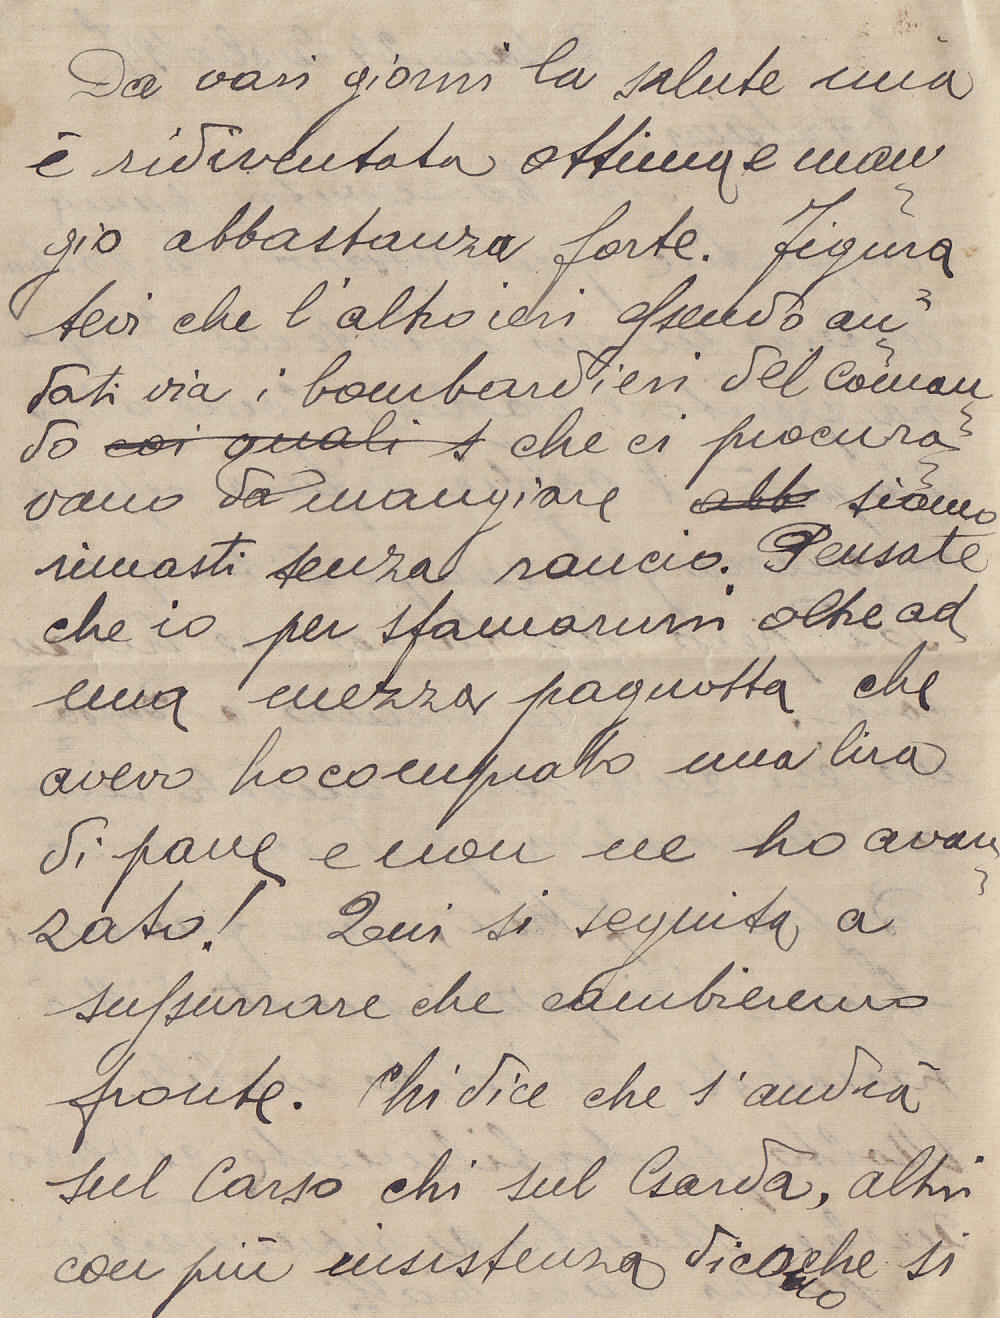 Da vari giorni la salute mia
è ridiventata ottima e man
gio abbastanza forte. Figura
tevi che l'altro ieri essendo an
dati via i bombardieri del coman
do coi quali s che ci procura
vano da mangiare abb siamo
rimasti senza rancio. Pensate
che io per sfamarmi oltre ad
una mezza pagnotta che
avevo ho comprato una lira
di pane e non ne ho avan
zato! Qui si seguita a
sussurrare che cambieremo
fronte. Chi dice che s'andrà
sul Carso chi sul Garda, altri
con più insistenza dicono che si